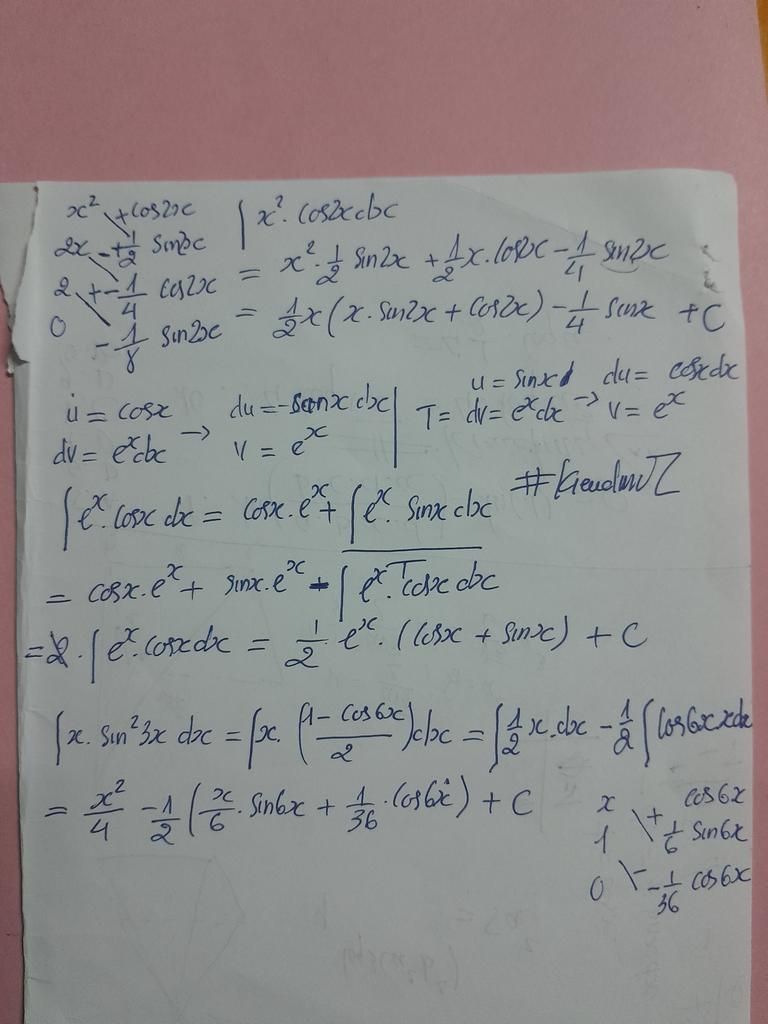 x² + cos2x
2x - +1/2 sin2x
2 + -1/4 cos2x
0 -1/8 sin2x
∫x². cos2x dx
= x². 1/2 sin2x + 1/2 x. cos2x - 1/4 sin2x
= 1/2 x (x. sin2x + cos2x) - 1/4 sinx + C
u = cosx → du = -sinx dx
dv = eˣdx v = eˣ
u = sinx du = cosx dx
T = dv = eˣdx → v = eˣ
∫eˣ. cosx dx = cosx. eˣ + ∫eˣ. sinx dx
T
= cosx. eˣ + sinx. eˣ - ∫eˣ. cosx dx
= 2. ∫eˣ. cosx dx = 1/2. eˣ. (cosx + sinx) + C
∫x. sin²3x dx = ∫x. (1 - cos6x / 2) dx = ∫1/2 x. dx - 1/2 ∫cos6x. x dx
= x²/4 - 1/2 (x/6. sin6x + 1/36. cos6x) + C
x cos6x
1 + 1/6 sin6x
0 - -1/36 cos6x